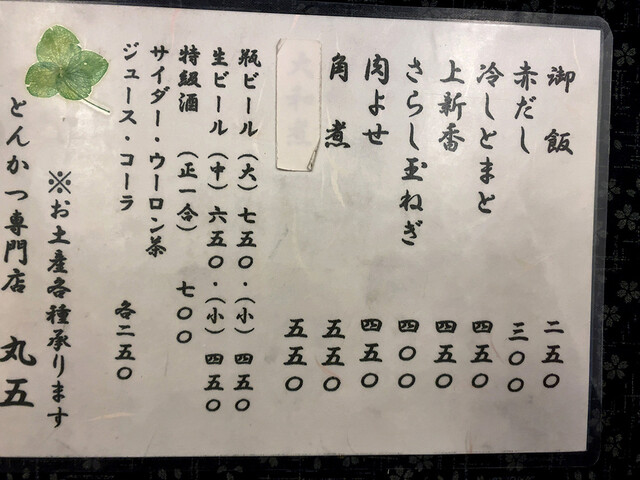 御飯 二五〇
赤だし 三〇〇
冷しとまと 四五〇
上新香 四五〇
さらし玉ねぎ 四〇〇
肉よせ 四五〇
角煮 五五〇
五五〇
瓶ビール (大) 七五〇・(小) 四五〇
生ビール (中) 六五〇・(小) 四五〇
特級酒 (正一合) 七〇〇
サイダー・ウーロン茶
ジュース・コーラ 各二五〇
※お土産各種承ります
とんかつ専門店 丸五